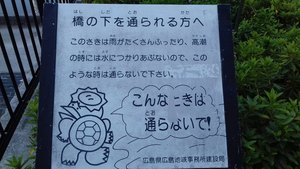 橋の下を通られる方へ
このさきは雨がたくさんふったり、高潮
の時には水につかりあぶないので、この
ような時は通らないで下さい。
こんなときは
通らないで!
広島県広島地域事務所建設局